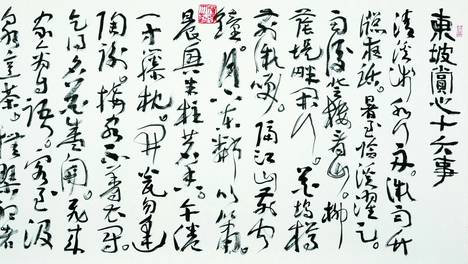 東坡賞心十六事
清溪淺水行舟。微雨竹
窗夜話。暑至臨溪濯足。
雨後登樓看山。柳
蔭堤畔閒行。花塢樽
前微笑。隔江山寺聞
鐘。月下東鄰吹簫。
晨興半柱茗香。午倦
一方藤枕。開甕勿逢
陶謝。接客不著衣冠。
乞得名花盛開。飛來
家禽自語。客至汲
泉烹茶。撫琴聽者